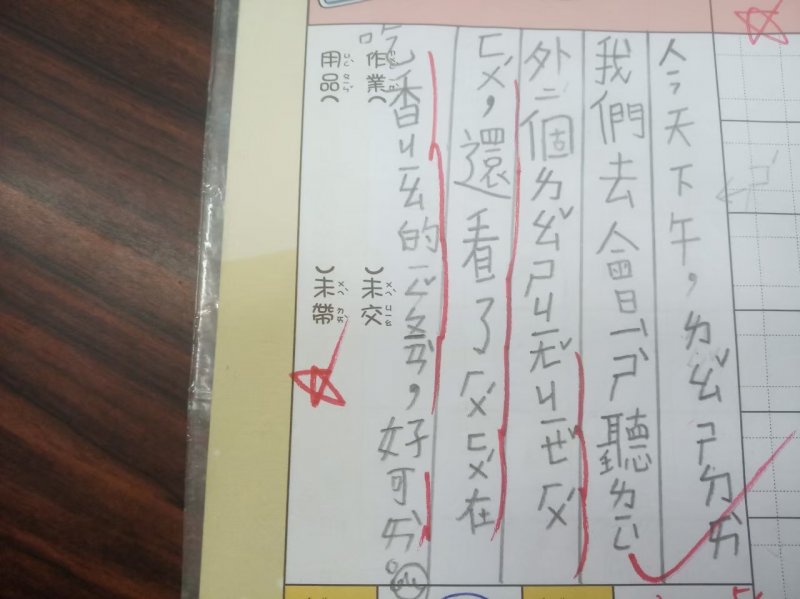 今天下午，ㄌㄠˇㄕㄉㄞˋ
我們去會ㄧˋㄕˋ聽ㄌㄧㄥˋ
外二個ㄌㄠˇㄕㄐㄧㄤˇㄐㄧㄝˇㄏㄨˊ
ㄈㄨˊ，還看了ㄏㄨˊㄈㄨˊ在
吃香ㄐㄧㄠ的ㄧㄥˇㄆㄧㄢˋ，好可ㄞˋ。
作業( )未交
用品( )未帶